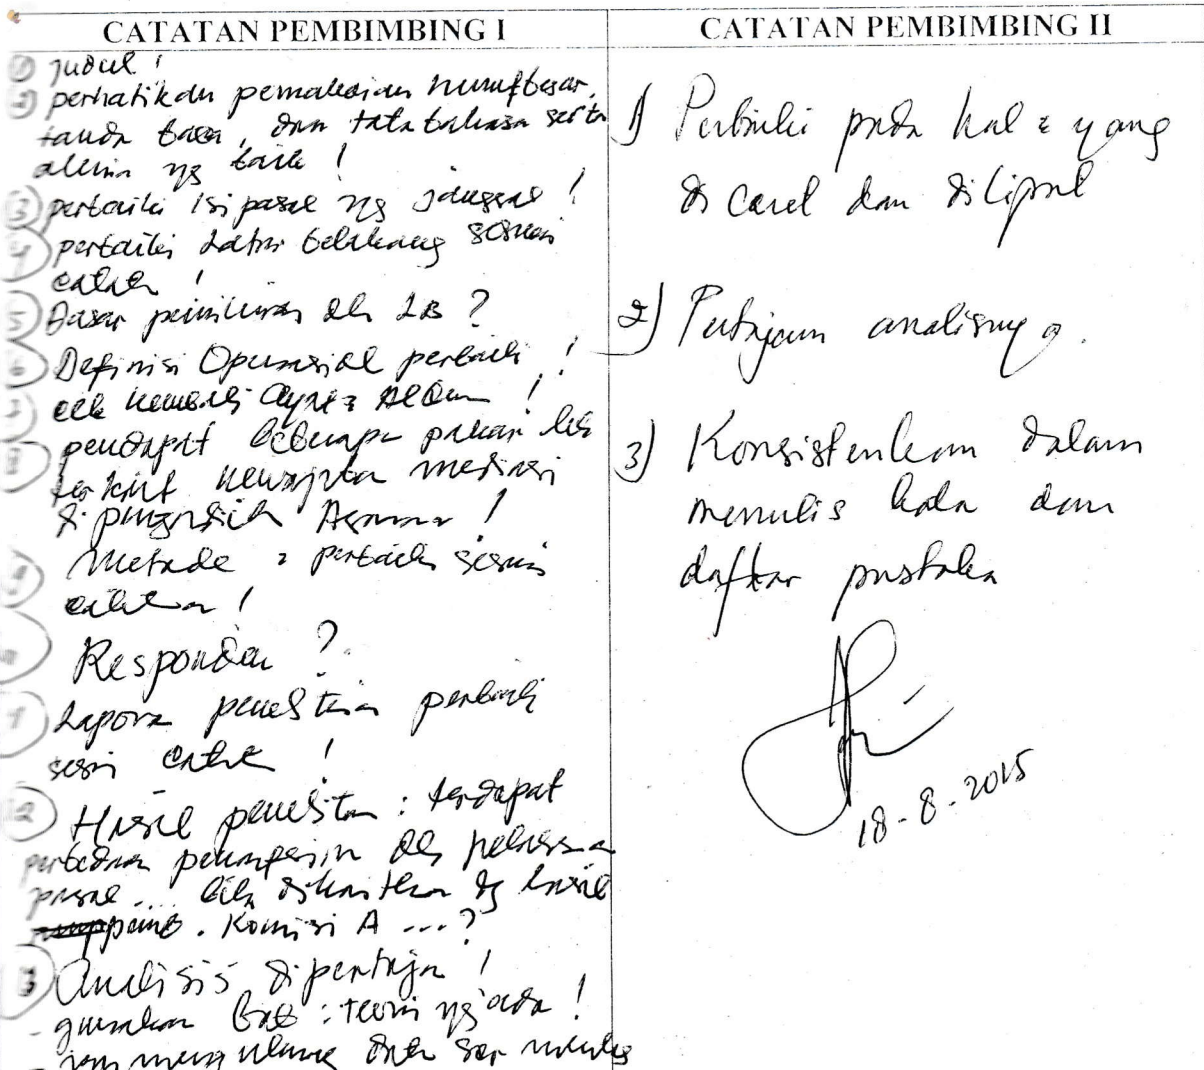 CATATAN PEMBIMBING I
1) judul!
2) perhatikan pemakaian huruf besar,
tanda baca, dan tata bahasa serta
alinia yg baik!
3) perbaiki isi pasal yg janggal!
4) perbaiki Latar belakang sesuai
catatan!
5) Dasar pemikiran dlm LB?
6) Definisi Operasional perbaiki!
7) cek kembali Ayat2 AlQuran!
pendapat beberapa pakar
terkait mediasi
di Agama!
Metode : perbaiki sesuai
catatan!
Responden?
Laporan penelitian perbaiki
sesuai catatan!
12) Hasil penelitian : terdapat
perbedaan dlm
pasal... bila dikaitkan dg hasil
Komisi A ...?
13) Analisis dipertajam!
- gunakan Bab : teori yg ada!
- jgn mengulang data
CATATAN PEMBIMBING II
1) Perbaiki pada hal2 yang
di coret dan dilipat
2) Pertajam analisanya.
3) Konsistenkan dalam
menulis kata dan
daftar pustaka
18-8-2015